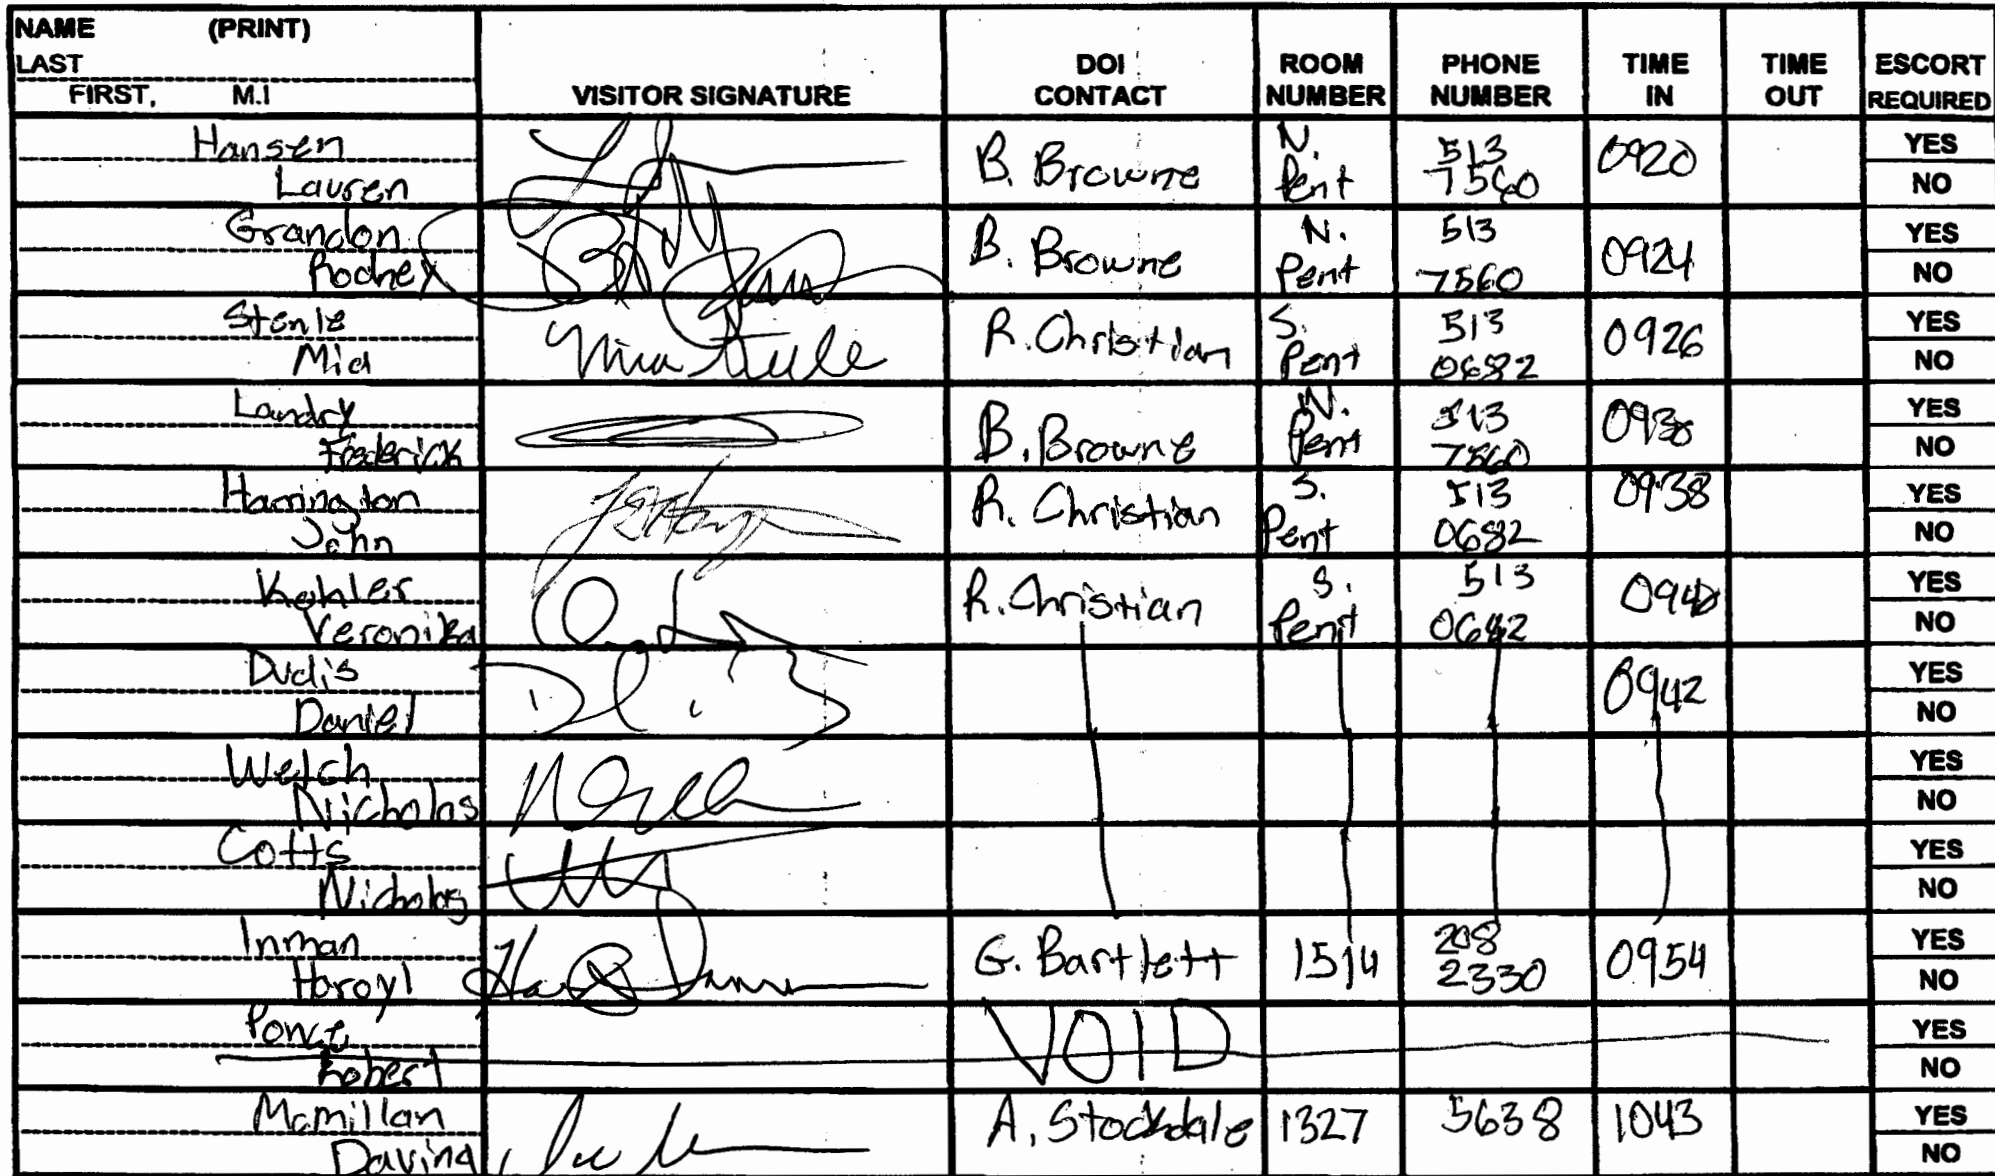 NAME (PRINT)
LAST
FIRST, M.I
VISITOR SIGNATURE
DOI CONTACT
ROOM NUMBER
PHONE NUMBER
TIME IN
TIME OUT
ESCORT REQUIRED
Hansen
Lauren
B. Browne
N. Pent
513 7560
0920
YES
NO
Grandon
Rodney
B. Browne
N. Pent
513 7560
0924
YES
NO
Stenle
Mia
R. Christian
S. Pent
513 0682
0926
YES
NO
Landry
Frederick
B. Browne
N. Pent
513 7560
0930
YES
NO
Harrington
John
R. Christian
S. Pent
513 0682
0938
YES
NO
Kohler
Veronika
R. Christian
S. Pent
513 0682
0940
YES
NO
Dudis
Daniel
0942
YES
NO
Welch
Nicholas
YES
NO
Cotts
Nicholas
YES
NO
Inman
Haroyl
G. Bartlett
1514
208 2330
0954
YES
NO
Ponce
Robert
VOID
YES
NO
Mcmillan
Davina
A. Stockdale
1327
5638
1043
YES
NO